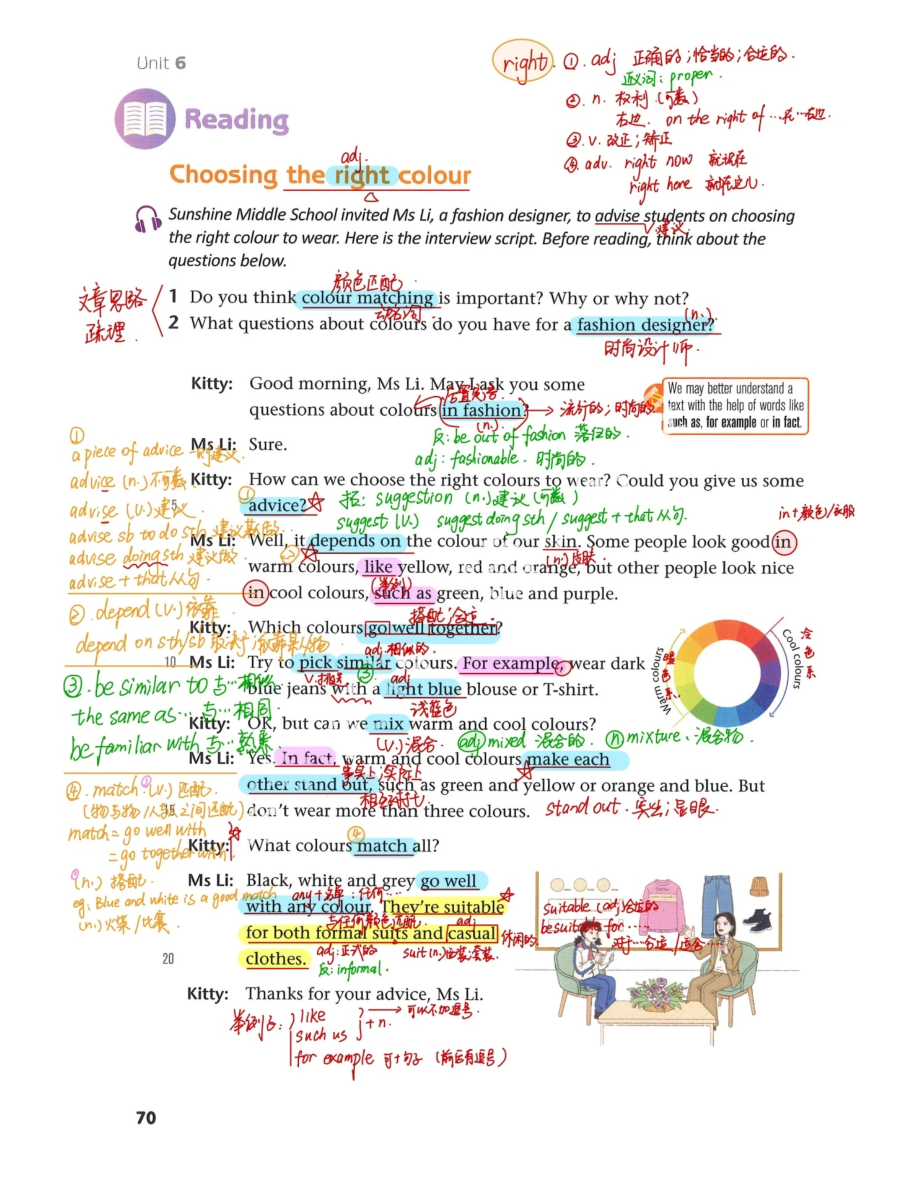 Unit 6
Reading
right ①. adj 正确的；恰当的；合适的.
近义词：proper.
②. n. 权利（可数）
右边. on the right of …在…右边.
③. v. 改正；矫正
④. adv. right now 就现在
right here 就在这儿.
adj.
Choosing the right colour
Sunshine Middle School invited Ms Li, a fashion designer, to advise students on choosing
v 建议.
the right colour to wear. Here is the interview script. Before reading, think about the
questions below.
文章思路
疏理.
颜色匹配
1 Do you think colour matching is important? Why or why not?
动名词
(n.)
2 What questions about colours do you have for a fashion designer?
时尚设计师.
Kitty: Good morning, Ms Li. May I ask you some
后置定语.
questions about colours in fashion? → 流行的；时尚的
(n.)
反：be out of fashion 落伍的.
adj：fashionable. 时尚的.
We may better understand a
text with the help of words like
such as, for example or in fact.
Ms Li: Sure.
Kitty: How can we choose the right colours to wear? Could you give us some
5 advice? ①
拓：suggestion (n.)建议（可数）
suggest (v.) suggest doing sth / suggest + that 从句.
in+颜色/衣服
Ms Li: Well, it depends on the colour of our skin. Some people look good in
②
(n.)皮肤.
warm colours, like yellow, red and orange, but other people look nice
(举例)
in cool colours, such as green, blue and purple.
搭配；合适
Kitty: Which colours go well together?
adj.相似的.
10 Ms Li: Try to pick similar colours. For example, wear dark
v.挑选 ③ adj
blue jeans with a light blue blouse or T-shirt.
浅蓝色
Warm colours
暖色系.
Cool colours
冷色系
Kitty: OK, but can we mix warm and cool colours?
(v.)混合. adj mixed 混合的. n mixture、混合物.
Ms Li: Yes. In fact, warm and cool colours make each
事实上；实际上
other stand out, such as green and yellow or orange and blue. But
相互衬托
15 don't wear more than three colours.
stand out. 突出；显眼.
④
Kitty: What colours match all?
Ms Li: Black, white and grey go well
any+名单：任何…
with any colour. They're suitable
与任何颜色匹配. adj
for both formal suits and casual 休闲的
adj：正式的 suit(n.)西装；套装.
20 clothes.
反：informal.
Kitty: Thanks for your advice, Ms Li.
suitable (adj)合适的
be suitable for ……
对于…合适/适合……
举例子：
like
such us
→ 可以不加逗号.
+ n.
for example 可+句子（前后有逗号）
①
a piece of advice 一对建议.
advice (n.)不可数
advise (v.)建议.
advise sb to do sth 建议某做.
advise doing sth 建议做
advise + that从句.
②. depend (v.)依靠
depend on sth/sb 取决于；依靠某人/物
③. be similar to 与…相似
the same as … 与…相同
be familiar with 与…熟悉
④. match ①(v.) 匹配.
(物与物/人员之间匹配)
match = go well with
= go together with
②(n.) 搭配.
eg: Blue and white is a good match
(n.)火柴/比赛.
70